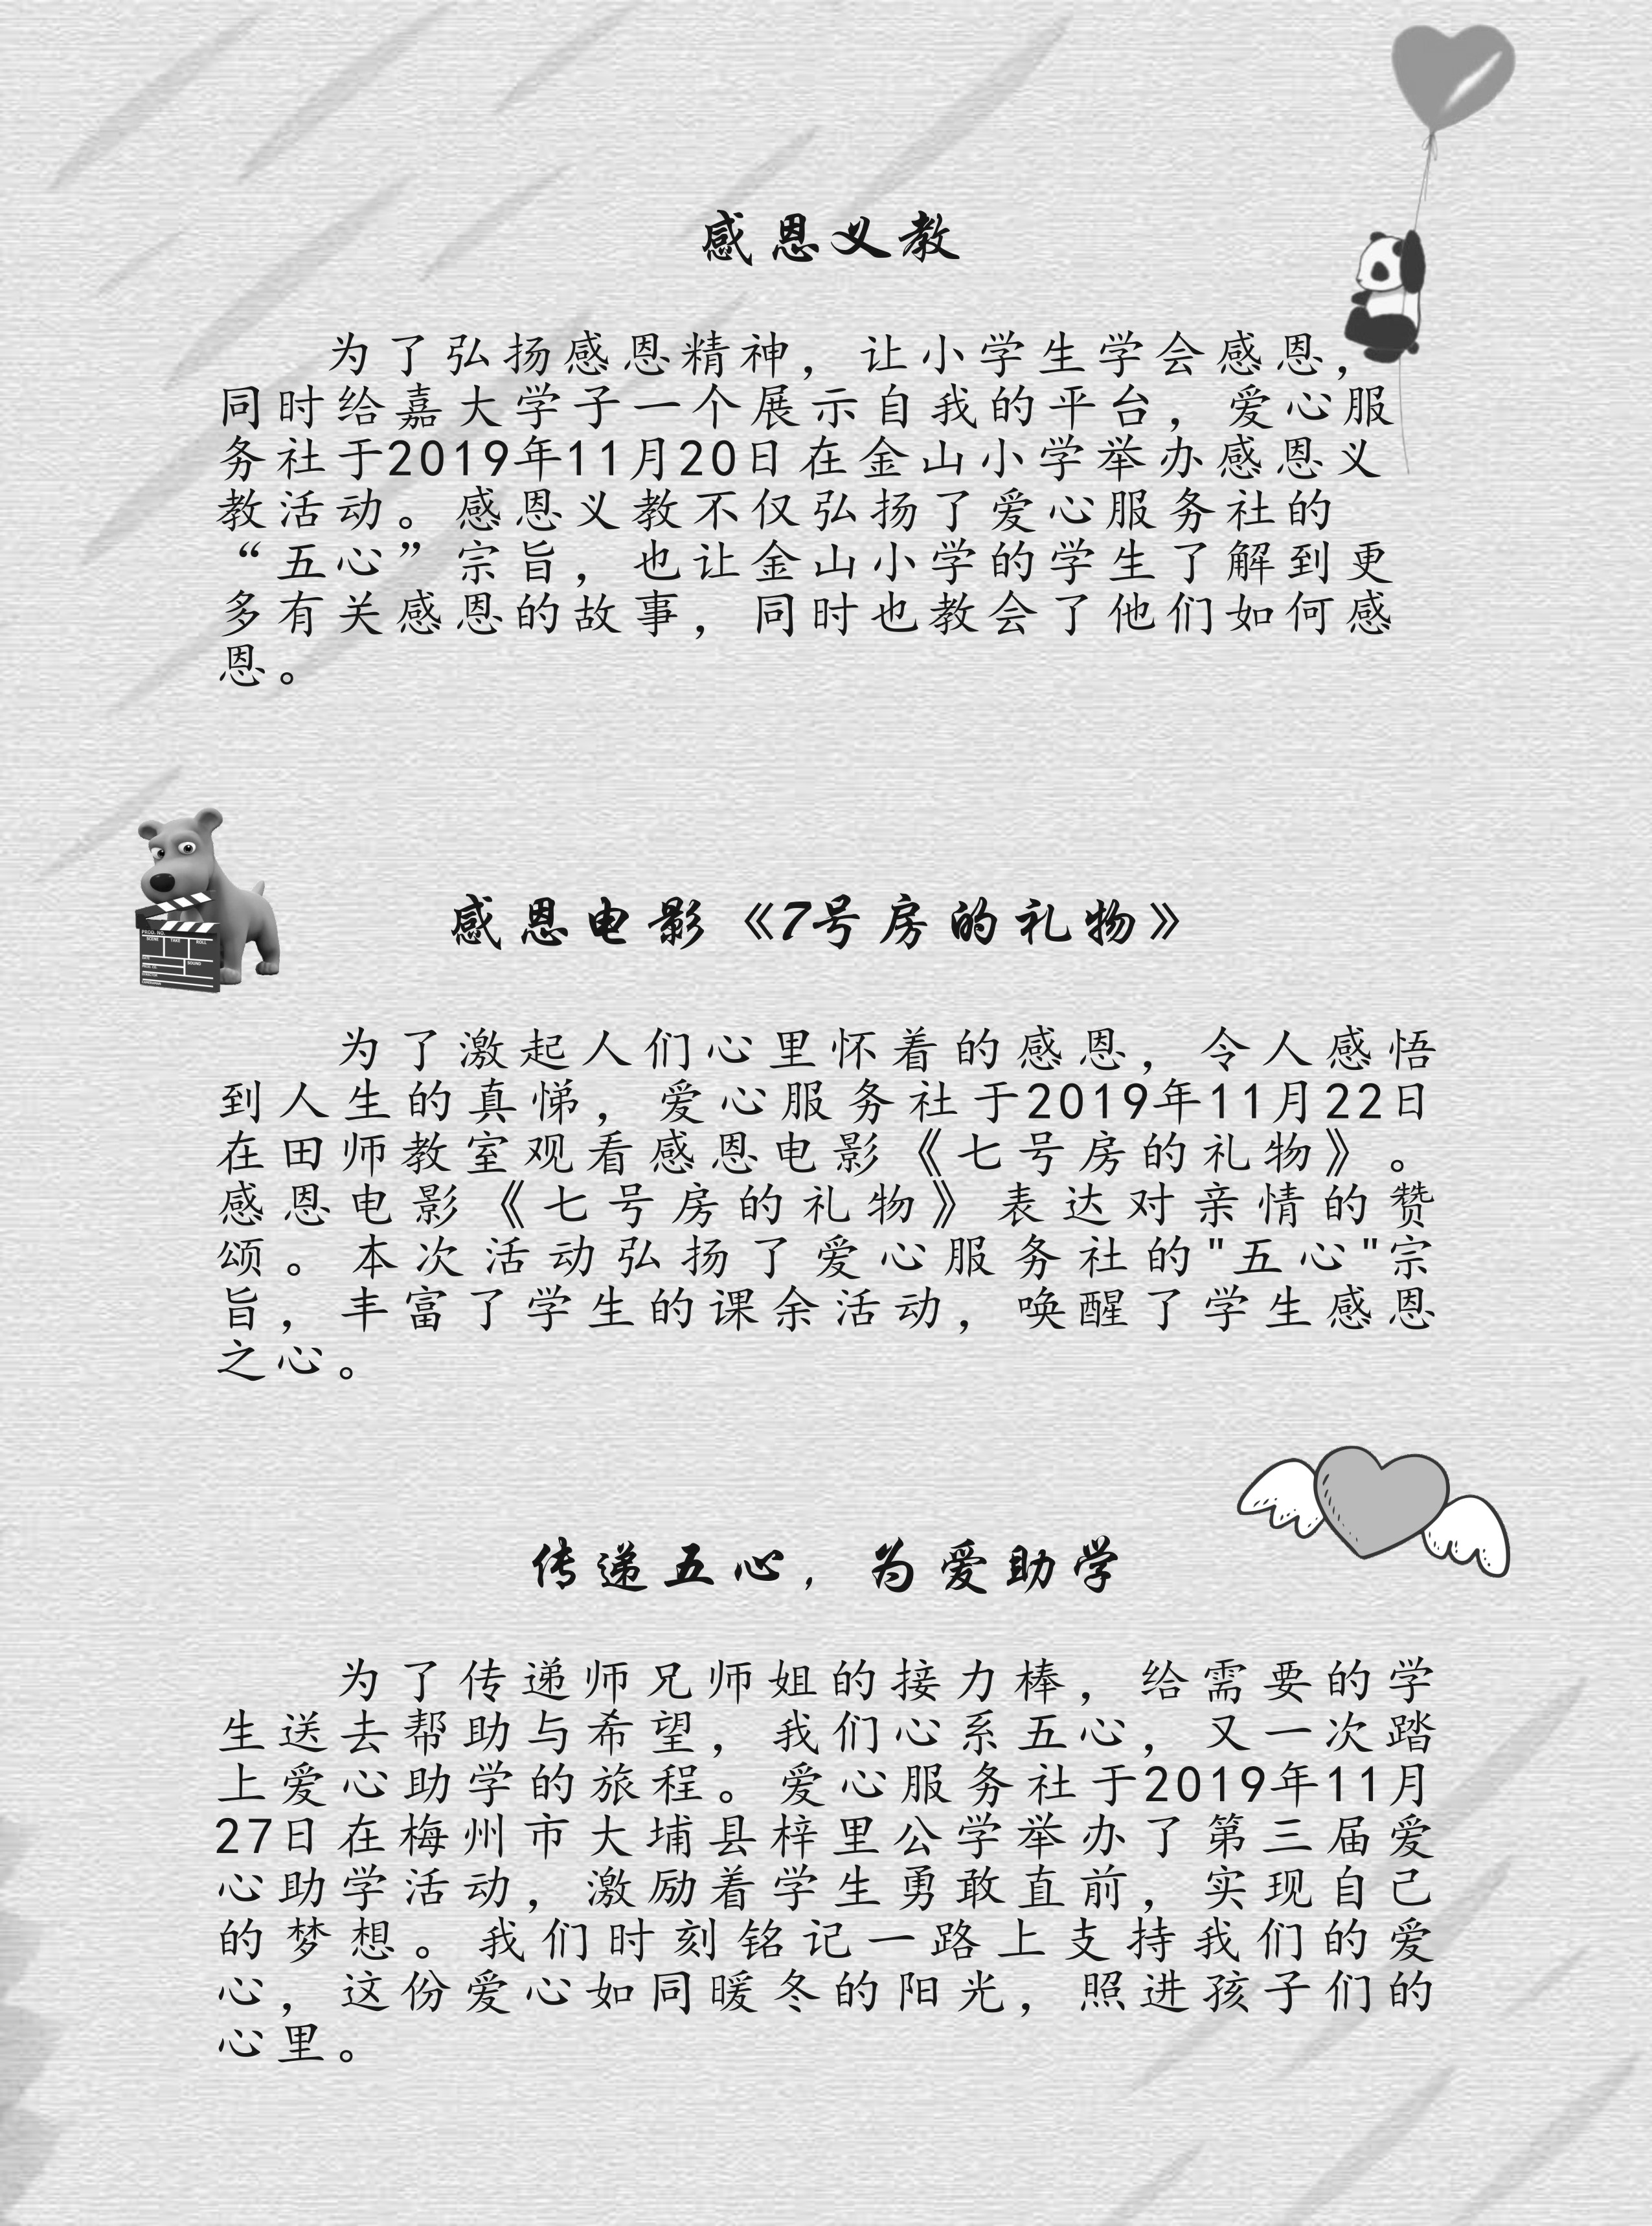 感恩义教
为了弘扬感恩精神，让小学生学会感恩，
同时给嘉大学子一个展示自我的平台，爱心服
务社于2019年11月20日在金山小学举办感恩义
教活动。感恩义教不仅弘扬了爱心服务社的
“五心”宗旨，也让金山小学的学生了解到更
多有关感恩的故事，同时也教会了他们如何感
恩。
感恩电影《7号房的礼物》
为了激起人们心里怀着的感恩，令人感悟
到人生的真悌，爱心服务社于2019年11月22日
在田师教室观看感恩电影《七号房的礼物》。
感恩电影《七号房的礼物》表达对亲情的赞
颂。本次活动弘扬了爱心服务社的"五心"宗
旨，丰富了学生的课余活动，唤醒了学生感恩
之心。
传递五心，为爱助学
为了传递师兄师姐的接力棒，给需要的学
生送去帮助与希望，我们心系五心，又一次踏
上爱心助学的旅程。爱心服务社于2019年11月
27日在梅州市大埔县梓里公学举办了第三届爱
心助学活动，激励着学生勇敢直前，实现自己
的梦想。我们时刻铭记一路上支持我们的爱
心，这份爱心如同暖冬的阳光，照进孩子们的
心里。